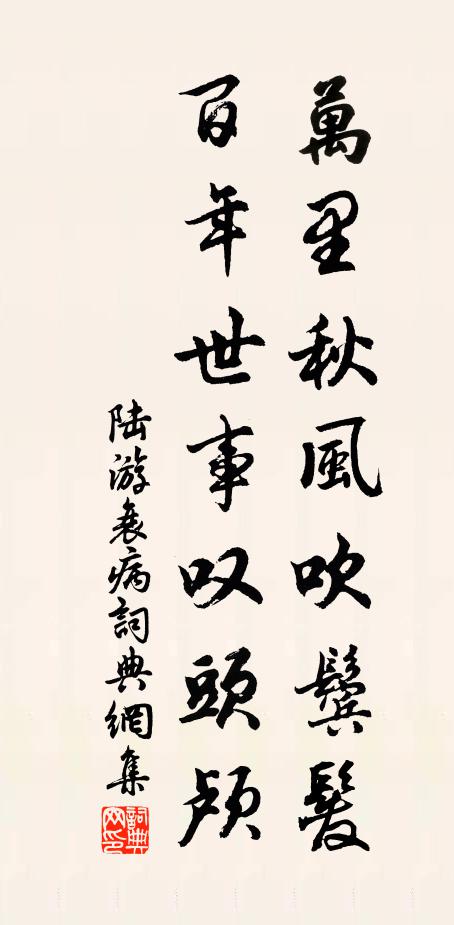 萬里秋風吹鬢髮
百年世事叹頭颅
陆游衰病詞典網集
詞典